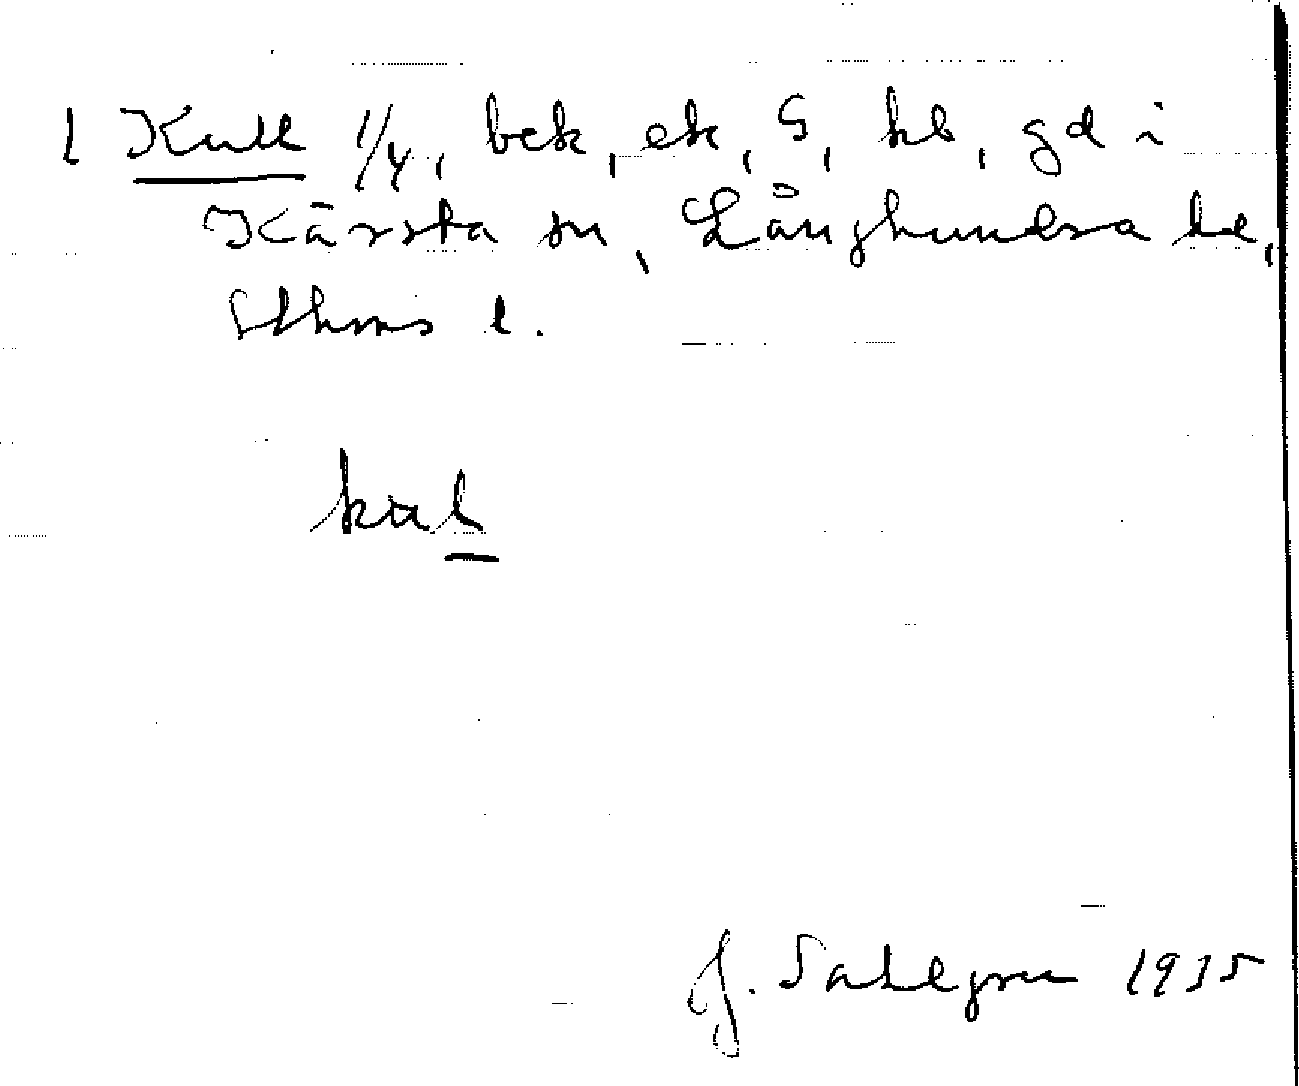 1 Kull 1/4, bek, ek, S, hb, gd i
Kårsta sn, Långhundra hd,
Sthms l.
kul
J. Sahlgren 1935